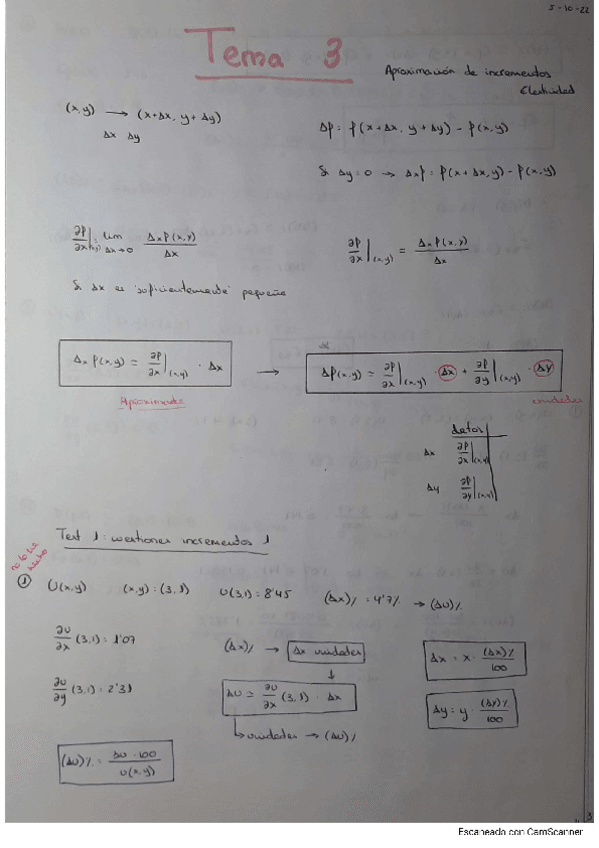 5-10-22
Tema 3
Aproximación de incrementos
Elasticidad
(x,y) → (x+Δx, y+Δy)
Δx Δy
Δf = f(x+Δx, y+Δy) - f(x,y)
Si Δy=0 → Δxf = f(x+Δx,y) - f(x,y)
∂f/∂x|(x,y) = lim Δx→0 Δxf(x,y)/Δx
∂f/∂x|(x,y) = Δxf(x,y)/Δx
Si Δx es "suficientemente" pequeño
Δx f(x,y) = ∂f/∂x|(x,y) · Δx
→
Δf(x,y) = ∂f/∂x|(x,y) · Δx + ∂f/∂y|(x,y) · Δy
unidades
datos
Δx ∂f/∂x|(x,y)
Δy ∂f/∂y|(x,y)
Test 1: cuestiones incrementos 1
① U(x,y) (x,y) = (3,1) U(3,1) = 8'45 (Δx)% = 4'7% → (ΔU)%
∂U/∂x (3,1) = 1'07
(Δx)% → Δx unidades
Δx = x · (Δx)%/100
∂U/∂y (3,1) = 2'31
ΔU ≃ ∂U/∂x (3,1) · Δx
Δy = y · (Δy)%/100
↳ unidades → (ΔU)%
(ΔU)% = ΔU · 100/U(x,y)
Escaneado con CamScanner